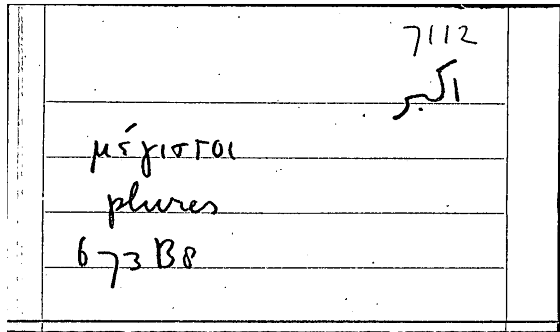 7112
اكبر
μέγιστοι
plures
673 B8